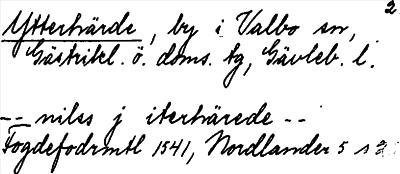 2
Ytterhärde, by i Valbo sn,
Gästrikl. ö. doms. tg, Gävleb. l.
-- nilss j iterhärede --
Fogdefodrmtl 1541, Nordlander 5 s